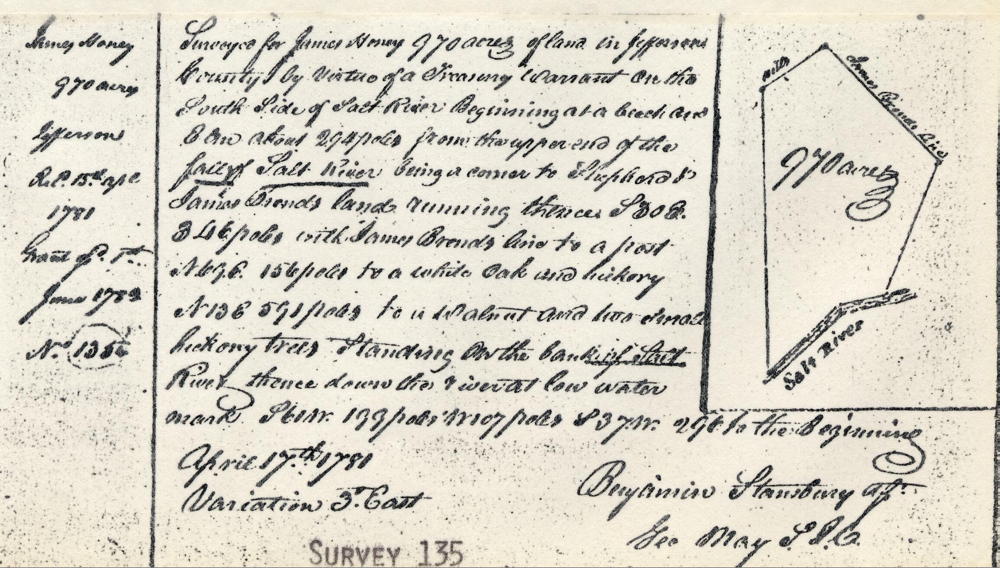 James Honey
970 acres
Jefferson
1781
June 178
No. 135
Surveyed for James Honey 970 acres of land in Jefferson
County by Virtue of a Treasury Warrant on the
South Side of Salt River Beginning at a beech and
Elm about 294 poles from the upper end of the
falls of Salt River being a corner to Shepherd &
James Brends land running thence S 30 E.
346 poles with James Brends line to a post
N 69 E. 156 poles to a white Oak and hickory
N 13 E 591 poles to a Walnut and two Small
hickory trees Standing on the bank of Salt
River thence down the river at low water
mark S 61 W. 199 poles W 107 poles S 37 W. 296 to the Beginning
April 17th 1781
Variation 3° East
Benjamin Stansbury
Geo May S.J.C.
SURVEY 135
James Brends line
970 acres
Salt River